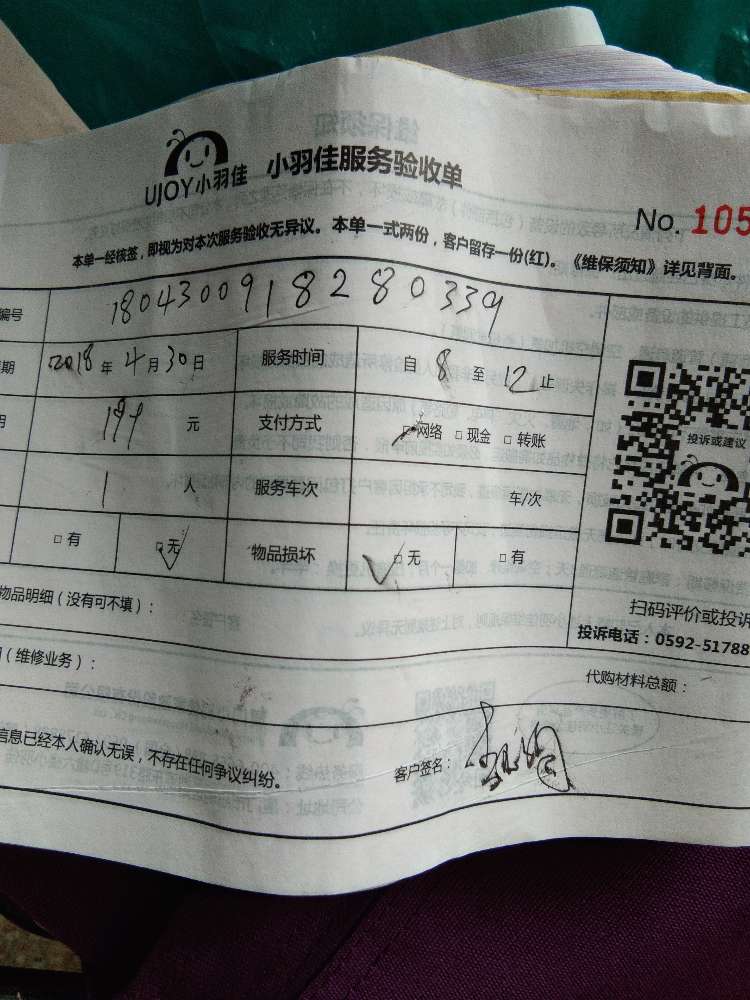 UJOY小羽佳 小羽佳服务验收单
No. 105
本单一经核签，即视为对本次服务验收无异议。本单一式两份，客户留存一份(红)。《维保须知》详见背面。
编号 1804300918280339
期 2018 年 4 月 30 日 服务时间 自 8 至 12 止
199 元 支付方式 □网络 □现金 □转账
投诉或建议
1 人 服务车次 车/次
□有 □无 物品损坏 □无 □有
物品明细（没有可不填）：
扫码评价或投诉
投诉电话：0592-51788
（维修业务）：
代购材料总额：
信息已经本人确认无误，不存在任何争议纠纷。
客户签名：